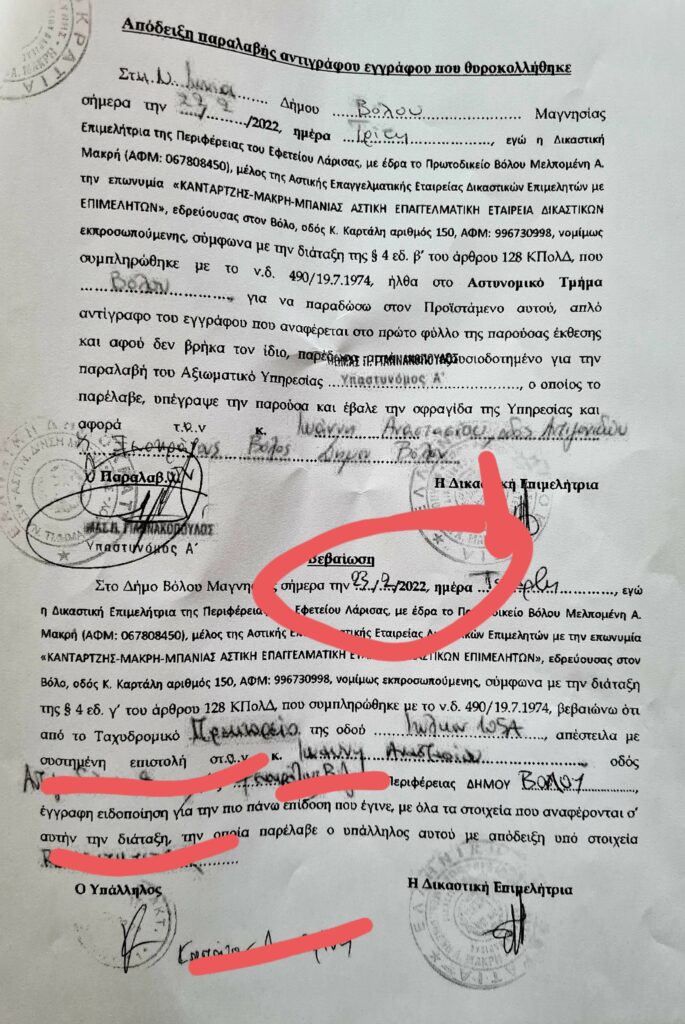 Απόδειξη παραλαβής αντιγράφου εγγράφου που θυροκολλήθηκε
Στη Ν. Ιωνία Δήμου Βόλου Μαγνησίας
σήμερα την 22/2/2022, ημέρα Τρίτη, εγώ η Δικαστική
Επιμελήτρια της Περιφέρειας του Εφετείου Λάρισας, με έδρα το Πρωτοδικείο Βόλου Μελπομένη Α.
Μακρή (ΑΦΜ: 067808450), μέλος της Αστικής Επαγγελματικής Εταιρείας Δικαστικών Επιμελητών με
την επωνυμία «ΚΑΝΤΑΡΤΖΗΣ-ΜΑΚΡΗ-ΜΠΑΝΙΑΣ ΑΣΤΙΚΗ ΕΠΑΓΓΕΛΜΑΤΙΚΗ ΕΤΑΙΡΕΙΑ ΔΙΚΑΣΤΙΚΩΝ
ΕΠΙΜΕΛΗΤΩΝ», εδρεύουσας στον Βόλο, οδός Κ. Καρτάλη αριθμός 150, ΑΦΜ: 996730998, νομίμως
εκπροσωπούμενης, σύμφωνα με την διάταξη της § 4 εδ. β' του άρθρου 128 ΚΠολΔ, που
συμπληρώθηκε με το ν.δ. 490/19.7.1974, ήλθα στο Αστυνομικό Τμήμα
Βόλου για να παραδώσω στον Προϊστάμενο αυτού, απλό
αντίγραφο του εγγράφου που αναφέρεται στο πρώτο φύλλο της παρούσας έκθεσης
και αφού δεν βρήκα τον ίδιο, παρέδωσα εξουσιοδοτημένο για την
παραλαβή του Αξιωματικό Υπηρεσίας Υπαστυνόμος Α', ο οποίος το
παρέλαβε, υπέγραψε την παρούσα και έβαλε την σφραγίδα της Υπηρεσίας και
αφορά τ.ο.ν κ. Ιωάννη Αναστασίου οδός Αντιγονιδών
Βόλος Δήμου Βόλου
Ο Παραλαβ.ών Η Δικαστική Επιμελήτρια
ΓΙΑΝΝΑΚΟΠΟΥΛΟΣ
Υπαστυνόμος Α'
Βεβαίωση
Στο Δήμο Βόλου Μαγνησίας σήμερα την 23/2/2022, ημέρα Τετάρτη, εγώ
η Δικαστική Επιμελήτρια της Περιφέρειας Εφετείου Λάρισας, με έδρα το Πρωτοδικείο Βόλου Μελπομένη Α.
Μακρή (ΑΦΜ: 067808450), μέλος της Αστικής Επαγγελματικής Εταιρείας Δικαστικών Επιμελητών με την επωνυμία
«ΚΑΝΤΑΡΤΖΗΣ-ΜΑΚΡΗ-ΜΠΑΝΙΑΣ ΑΣΤΙΚΗ ΕΠΑΓΓΕΛΜΑΤΙΚΗ ΕΤΑΙΡΕΙΑ ΔΙΚΑΣΤΙΚΩΝ ΕΠΙΜΕΛΗΤΩΝ», εδρεύουσας στον
Βόλο, οδός Κ. Καρτάλη αριθμός 150, ΑΦΜ: 996730998, νομίμως εκπροσωπούμενης, σύμφωνα με την διάταξη
της § 4 εδ. γ' του άρθρου 128 ΚΠολΔ, που συμπληρώθηκε με το ν.δ. 490/19.7.1974, βεβαιώνω ότι
από το Ταχυδρομικό Πρακτορείο της οδού Ιωλκού 105Α, απέστειλα με
συστημένη επιστολή στ.ο.ν κ. Ιωάννη Αναστασίου οδός
Περιφέρειας ΔΗΜΟΥ ΒΟΛΟΥ,
έγγραφη ειδοποίηση για την πιο πάνω επίδοση που έγινε, με όλα τα στοιχεία που αναφέρονται σ'
αυτήν την διάταξη, την οποία παρέλαβε ο υπάλληλος αυτού με απόδειξη υπό στοιχεία
Ο Υπάλληλος Η Δικαστική Επιμελήτρια